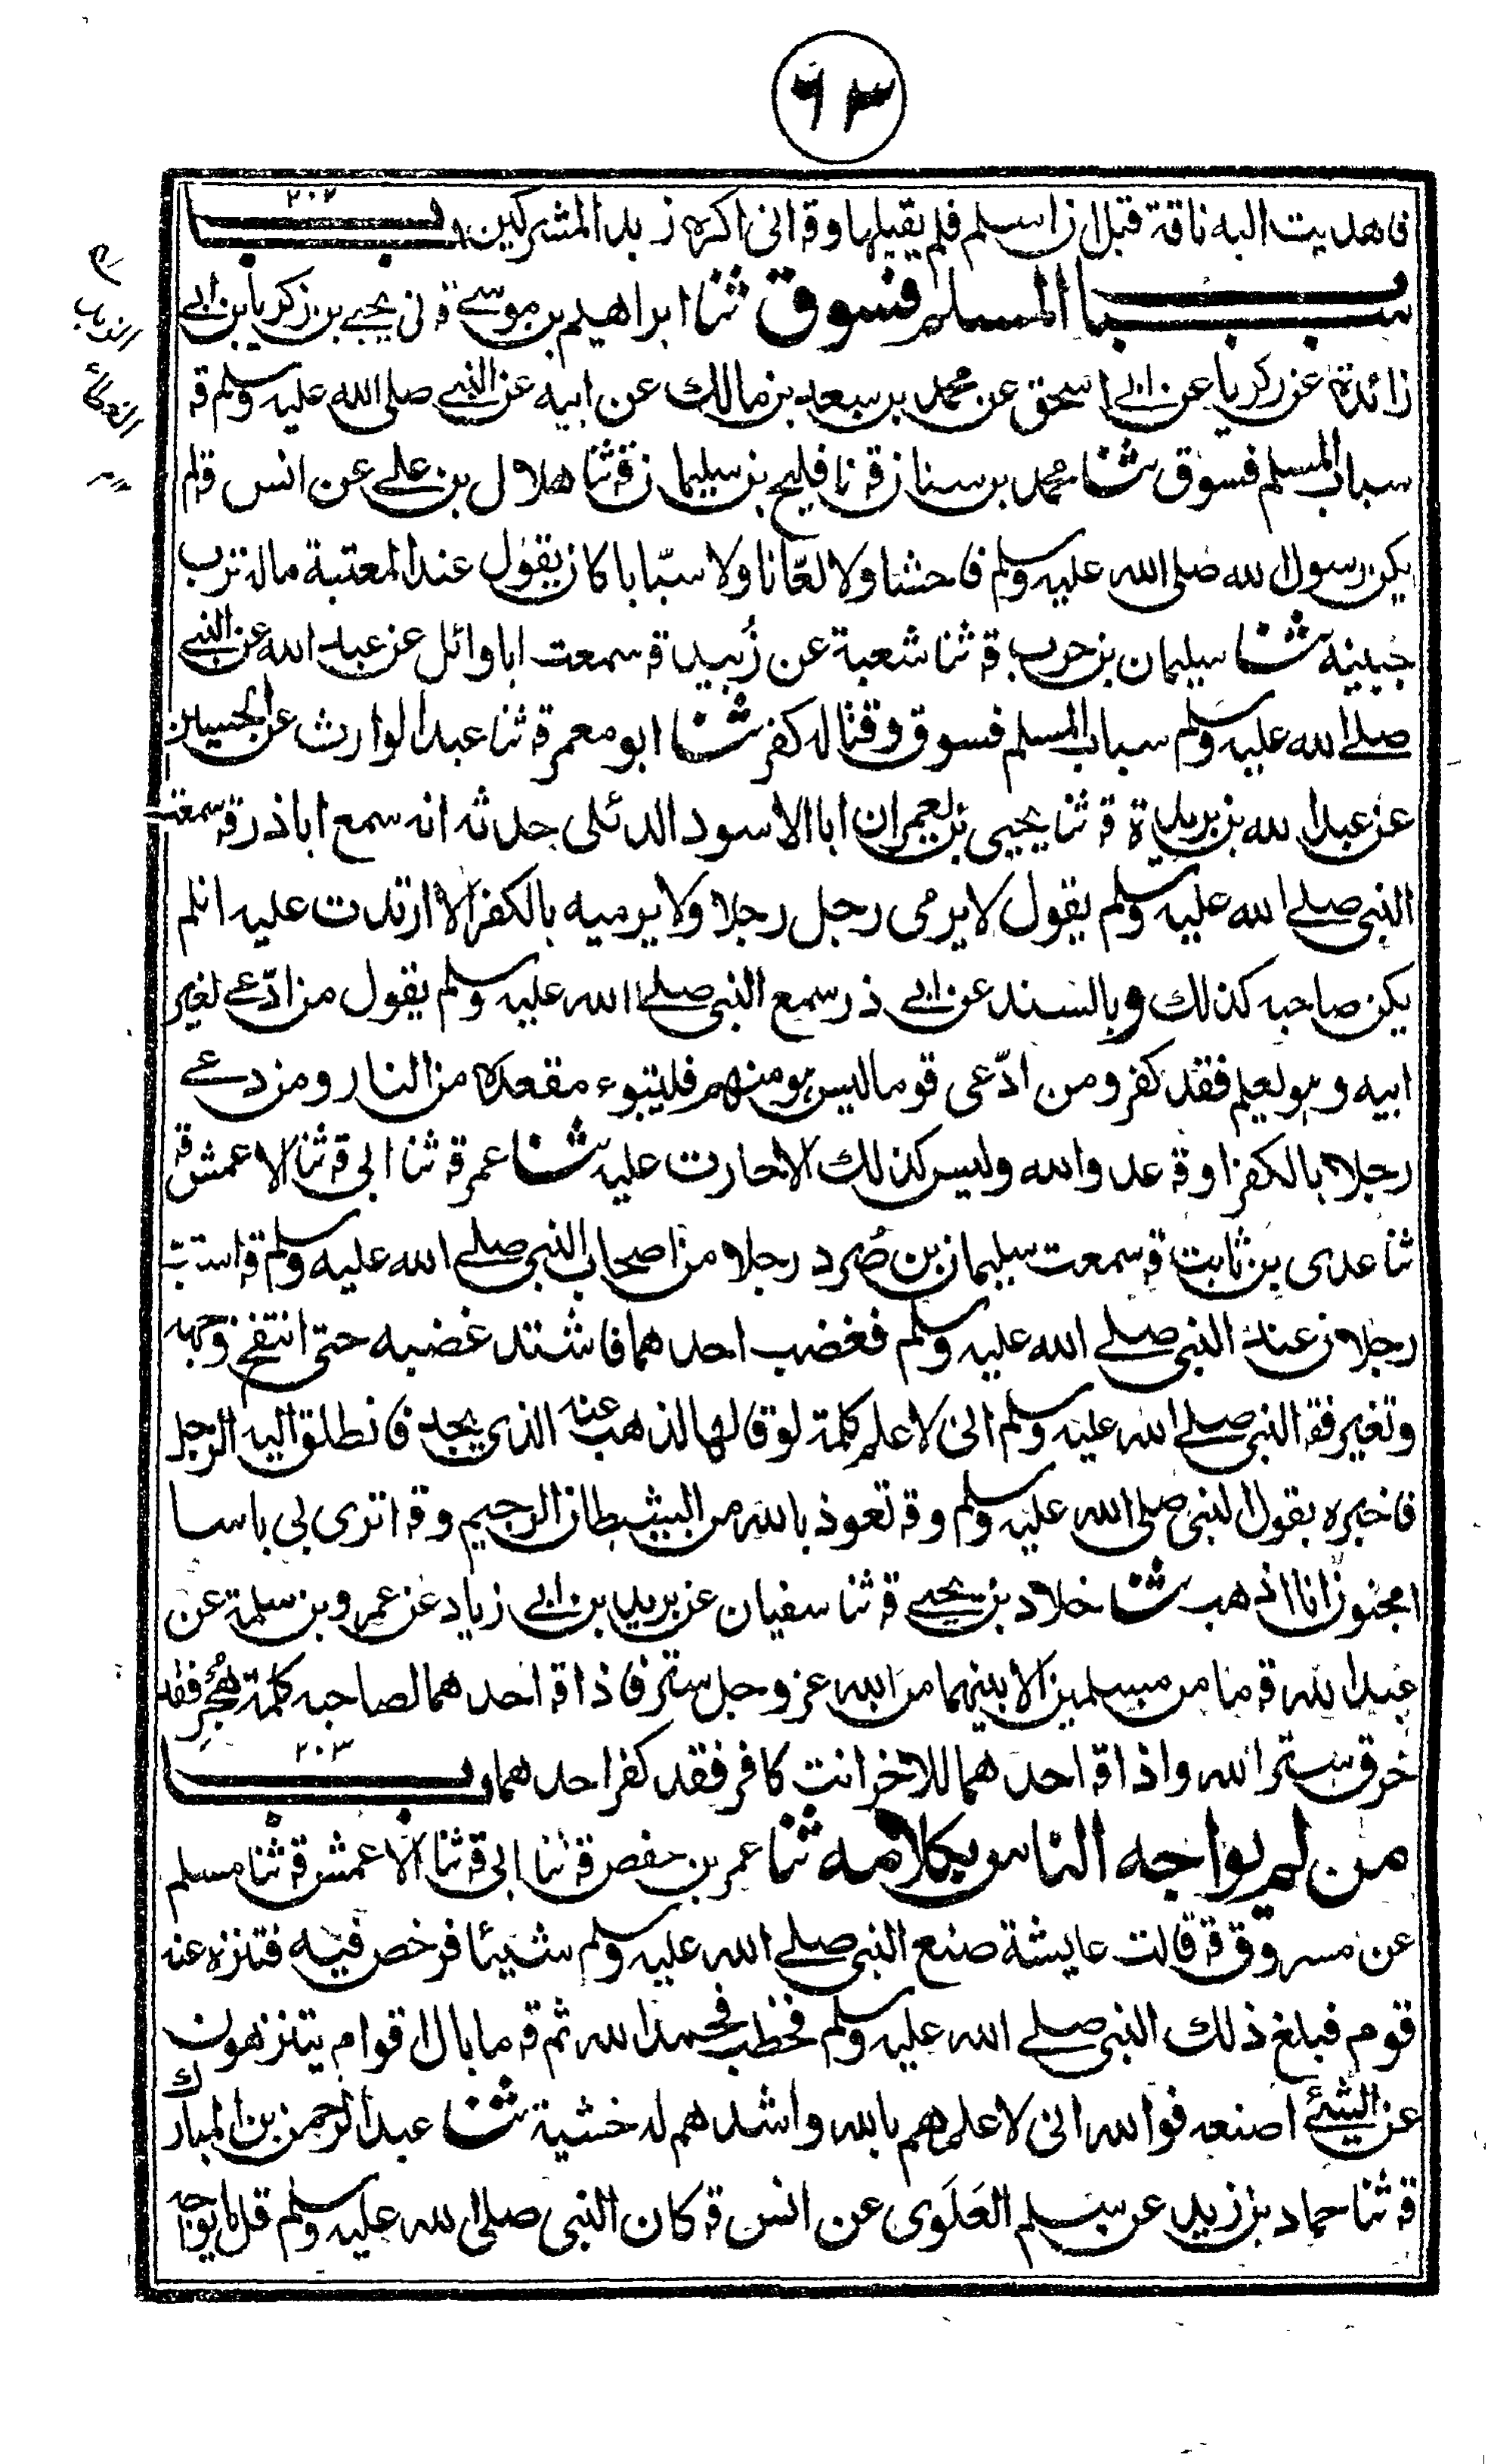 ٦٣
فاهديت اليه ناقة قبل ان اسلم فلم يقبلها وقۃ انی اكره زبد المشركين باب ٢٠٢
سباب المسلم فسوق ثنا ابراهيم بن موسے قۃ نی يحيے بن زكريا بن ابے
زائدة عن زكريا عن ابے اسحق عن محمد بن سعد بن مالك عن ابيه عن النبے صلی الله عليه وسلم قۃ
سباب المسلم فسوق ثنا محمد بن سنان قۃ نا فليح بن سليمان قۃ ثنا هلال بن علے عن انس قۃ لم
يكن رسول الله صلی الله عليه وسلم فاحشا ولا لعّانا ولا سبّابا كان يقول عند المعتبة ماله ترب
جبينه ثنا سليمان بن حرب قۃ ثنا شعبة عن زُبيد قۃ سمعت ابا وائل عن عبد الله عن النبے
صلے الله عليه وسلم سباب المسلم فسوق وقتاله كفر ثنا ابو معمر قۃ ثنا عبد الوارث عن الحسين
عن عبد الله بن بريدة قۃ ثنا يحيی بن يعمر ان ابا الاسود الدئلی حدثه انه سمع اباذر قۃ سمعت
النبی صلے الله عليه وسلم يقول لا يرمی رجل رجلا ولا يرميه بالكفر الا ارتدت عليه ان لم
يكن صاحبه كذلك وبالسند عن ابے ذر سمع النبی صلے الله عليه وسلم يقول من ادّعے لغير
ابيه وهو يعلم فقد كفر ومن ادّعی قوما ليس هو منهم فليتبوء مقعده من النار ومن دعے
رجلا بالكفر او قۃ عدو الله وليس كذلك الا حارت عليه ثنا عمر قۃ ثنا ابی قۃ ثنا الاعمش قۃ
ثنا عدی بن ثابت قۃ سمعت سليمان بن صُرد رجلا من اصحاب النبی صلے الله عليه وسلم قۃ استب
رجلان عند النبی صلے الله عليه وسلم فغضب احدهما فاشتد غضبه حتی انتفخ وجهه
وتغير فقۃ النبی صلے الله عليه وسلم انی لاعلم كلمة لو قالها لذهب عنه الذی يجد فانطلق اليه الرجل
فاخبره بقول النبی صلی الله عليه وسلم وقۃ تعوذ بالله من الشيطان الرجيم وقۃ اتری بی باسا
امجنون انا اذهب ثنا خلاد بن يحيے قۃ ثنا سفيان عن يزيد بن ابے زياد عن عمرو بن سلمة عن
عبد الله قۃ ما من مسلمين الا بينهما من الله عز وجل ستر فاذا قۃ احدهما لصاحبه كلمة هُجر فقد
خرق ستر الله واذا قۃ احدهما للاخر انت كافر فقد كفر احدهما باب ٢٠٣
من لم يواجه الناس بكلامه ثنا عمر بن حفص قۃ ثنا ابی قۃ ثنا الاعمش قۃ ثنا مسلم
عن مسروق قۃ قالت عايشة صنع النبی صلے الله عليه وسلم شيئا فرخص فيه فتنزه عنه
قوم فبلغ ذلك النبی صلے الله عليه وسلم فخطب فحمد الله ثم قۃ ما بال اقوام يتنزهون
عن الشئے اصنعه فوالله انی لاعلمهم بالله واشدهم له خشية ثنا عبد الرحمن بن المبارك
قۃ ثنا حماد بن زيد عن سلم العَلَوی عن انس قۃ كان النبی صلی الله عليه وسلم قل ما يواجه